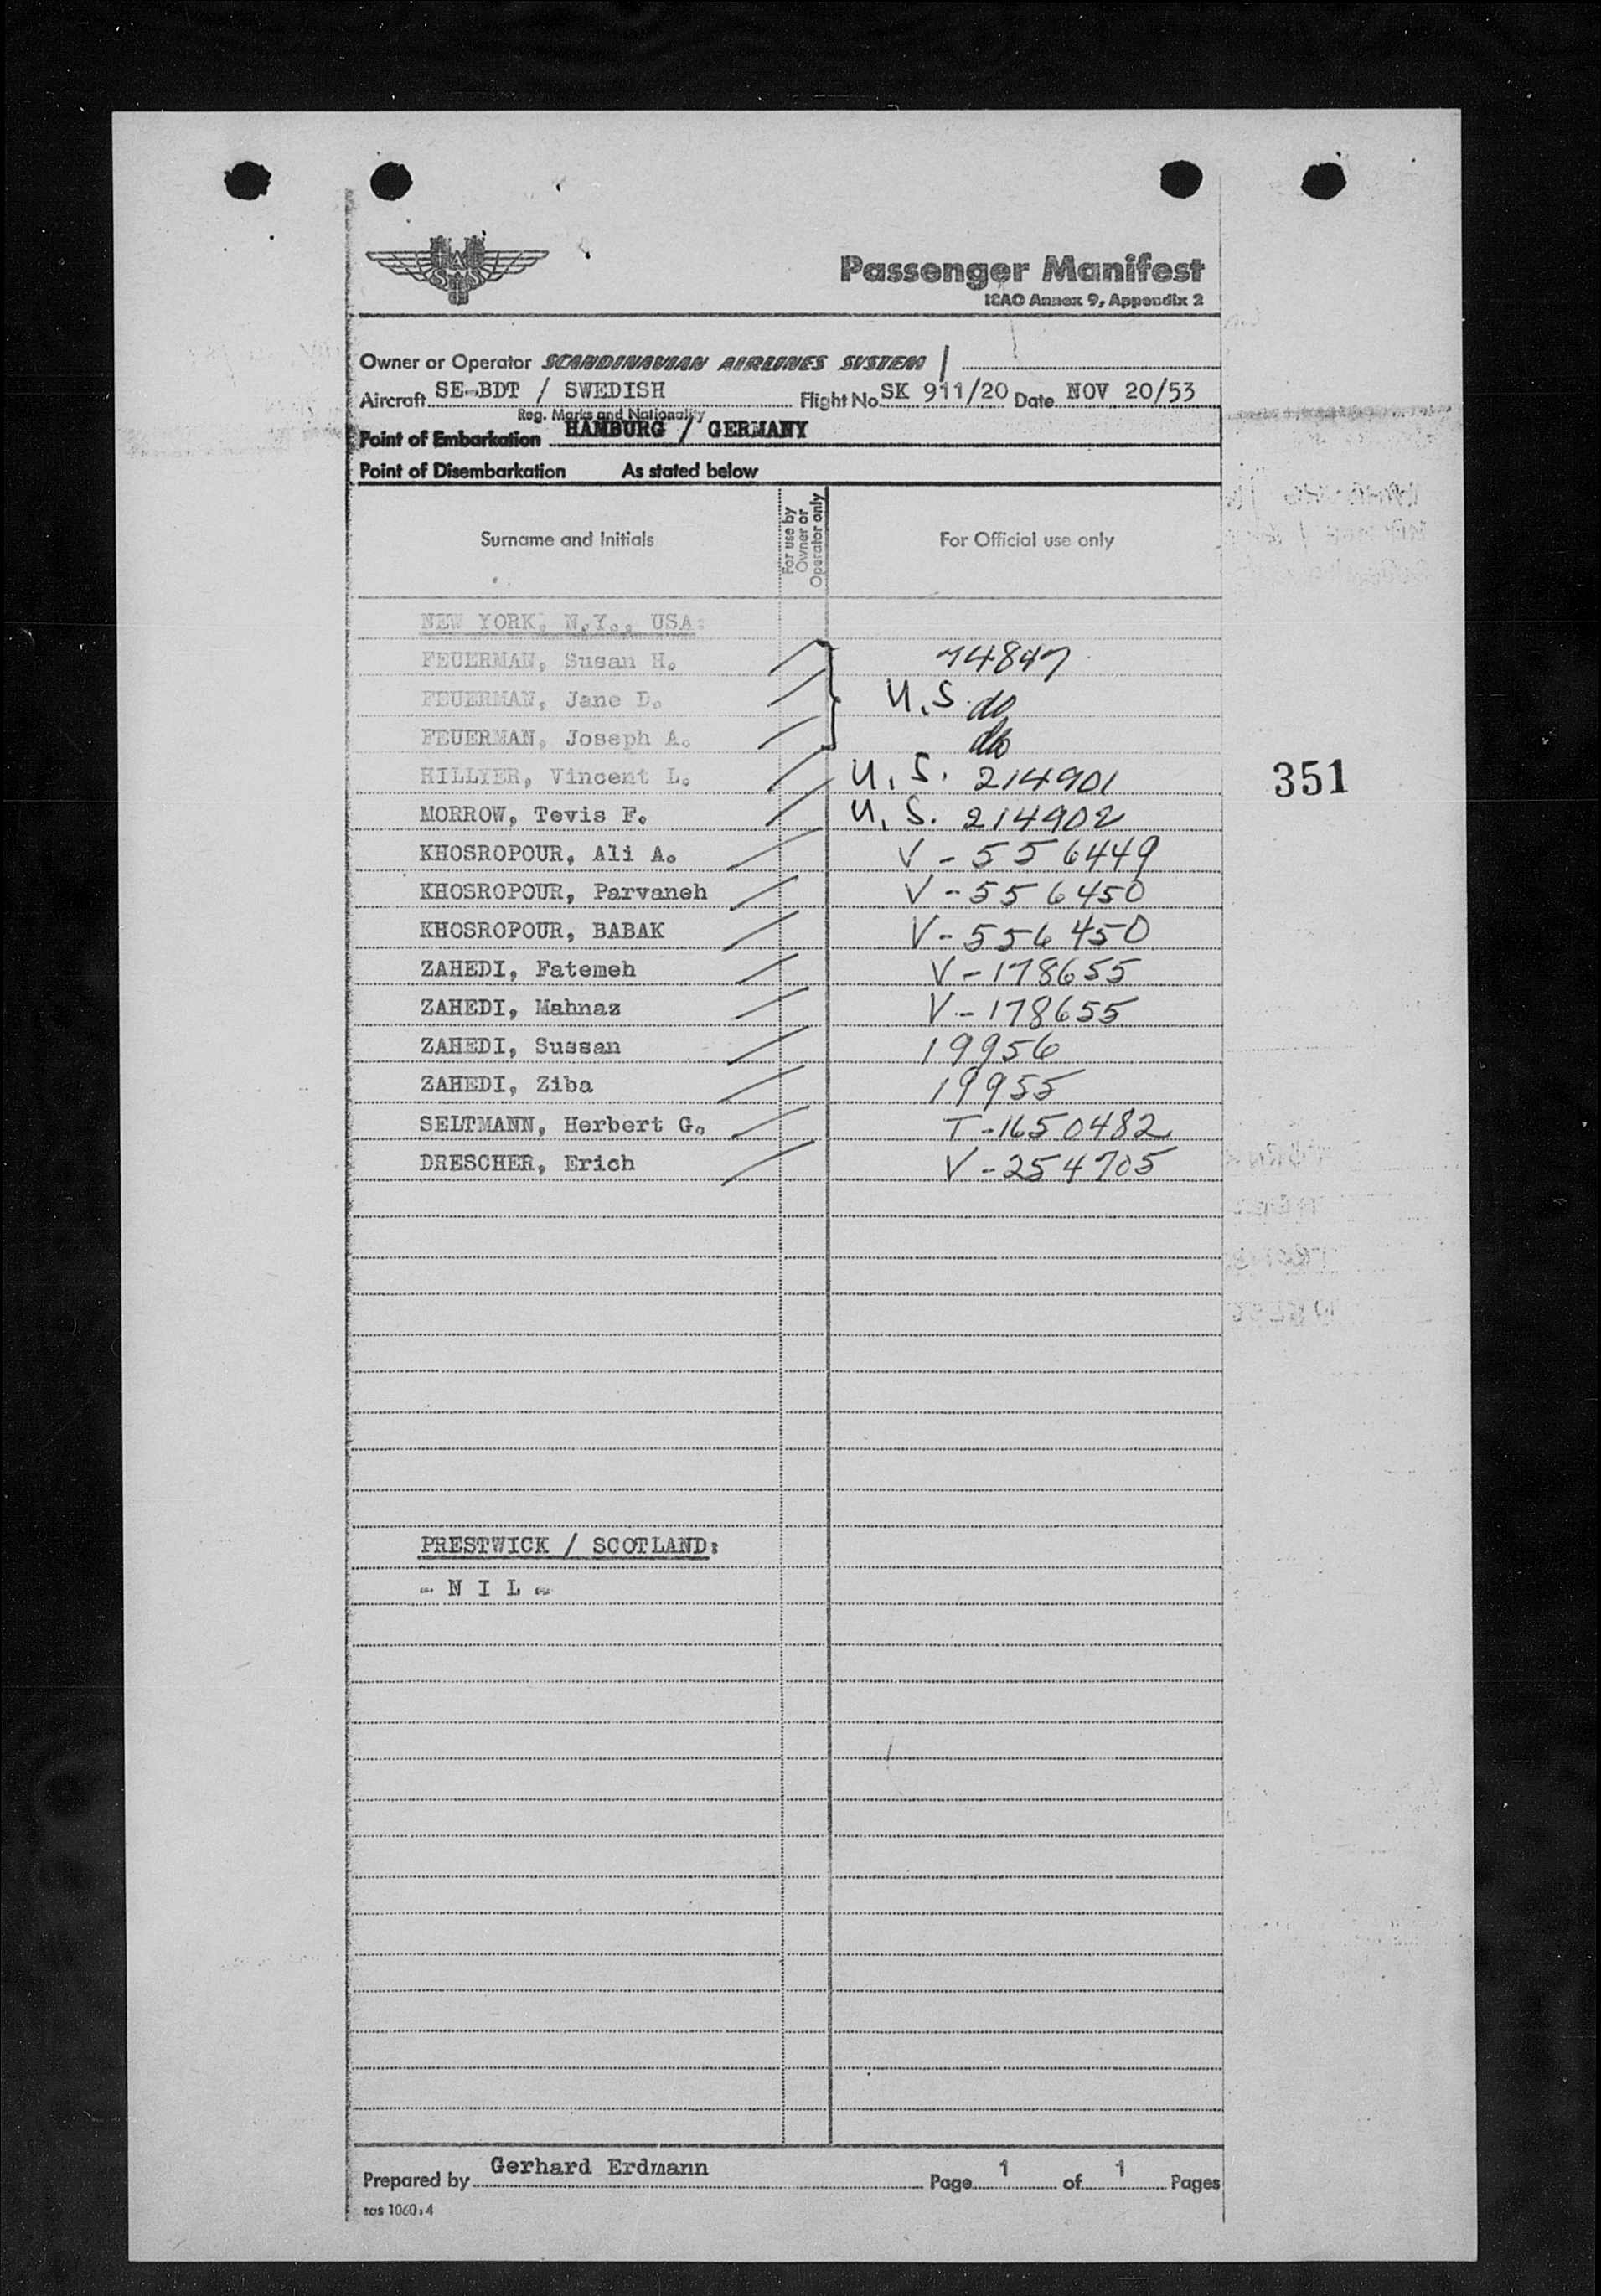 SAS
Passenger Manifest
ICAO Annex 9, Appendix 2
Owner or Operator SCANDINAVIAN AIRLINES SYSTEM /
Aircraft SE-BDT / SWEDISH Flight No. SK 911/20 Date NOV 20/53
Reg. Marks and Nationality
Point of Embarkation HAMBURG / GERMANY
Point of Disembarkation As stated below
Surname and Initials For use by Owner or Operator only For Official use only
NEW YORK, N.Y., USA:
FEUERMAN, Susan H. 74847
FEUERMAN, Jane D. U.S. do
FEUERMAN, Joseph A. do
HILLYER, Vincent L. U.S. 214901
351
MORROW, Tevis F. U.S. 214902
KHOSROPOUR, Ali A. V-556449
KHOSROPOUR, Parvaneh V-556450
KHOSROPOUR, BABAK V-556450
ZAHEDI, Fatemeh V-178655
ZAHEDI, Mahnaz V-178655
ZAHEDI, Sussan 19956
ZAHEDI, Ziba 19955
SELTMANN, Herbert G. T-1650482
DRESCHER, Erich V-254705
PRESTWICK / SCOTLAND:
- N I L -
Prepared by Gerhard Erdmann Page 1 of 1 Pages
sas 1060:4